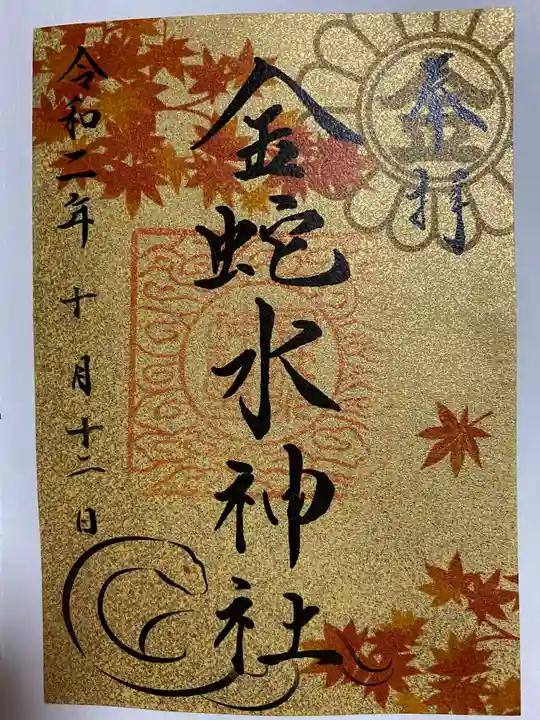 奉拝
金
金蛇水神社
令和二年十月十二日